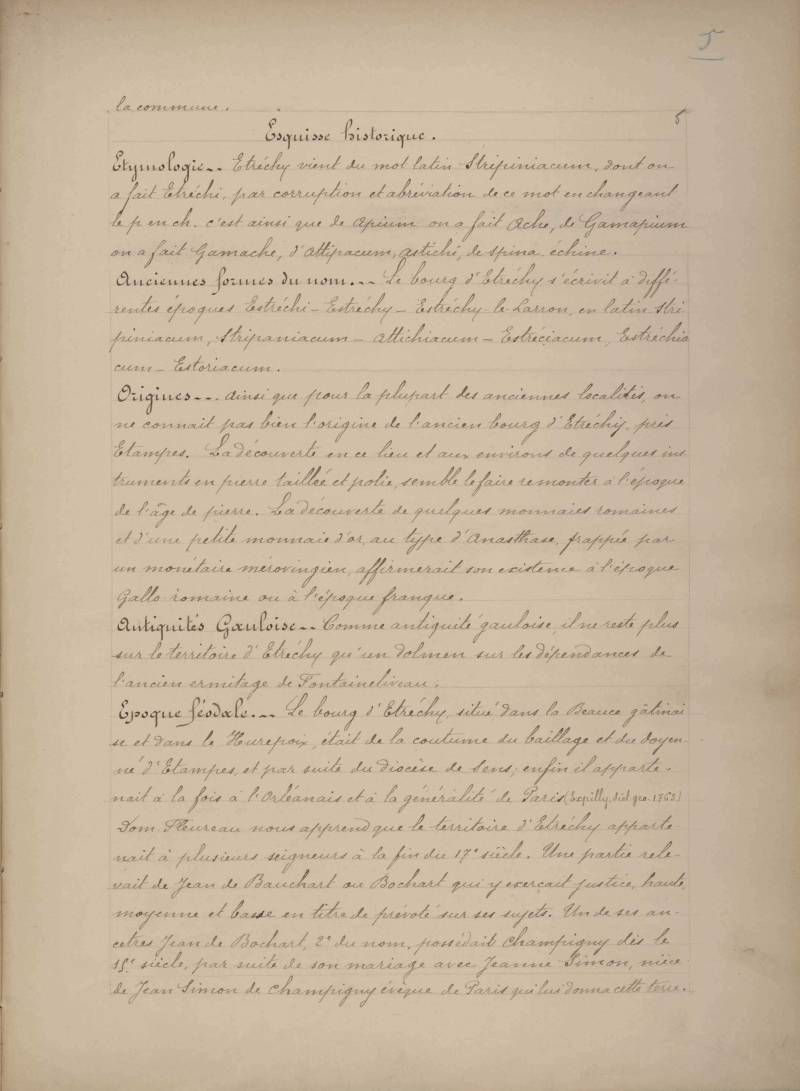 5
la commune.
5
Esquisse historique.
Etymologie.. Etréchy vient du mot latin Stripiniacum, dont on
a fait Etréchi, par corruption et abréviation de ce mot en changeant
le p en ch. c'est ainsi que de Apium on a fait Ache, de Gamapium
on a fait Gamache, d'Attipacum, astichi, de spina échine.
Anciennes formes du nom... Le bourg d'Etréchy s'écrivit à diffé-
rentes époques Estréchi - Estréchy - Estréchy le Larron, en latin Stri
piniacum, Stripaniacum - Attichiacum - Estréciacum, Estréchia
cum - Estoriacum.
Origines... Ainsi que pour la plupart des anciennes localités, on
ne connait pas bien l'origine de l'ancien bourg d'Etréchy, près
Etampes. La découverte en ce lieu et aux environs de quelques ins
truments en pierre taillée et polie, semble le faire remonter à l'époque
de l'âge de pierre. La découverte de quelques monnaies romaines
et d'une petite monnaie d'or, au type d'Anasthase, frappée par
un monétaire mérovingien, affirmerait son existence à l'époque
Gallo romaine ou à l'époque franque.
Antiquités Gauloise.. Comme antiquité gauloise, il ne reste plus
sur le territoire d'Etréchy qu'un dolmen sur les dépendances de
l'ancien ermitage de Fontaineliveau.
Epoque féodale... Le bourg d'Etréchy, situé dans la Beauce gâtinai
se et dans le Hurepoix, était de la coutume du baillage et du doyen-
né d'Etampes, et par suite du diocèse de Sens; enfin il apparte-
nait à la fois à l'Orléanais et à la généralité de Paris (Expilly, did. géo. 1763)
Dom Fleureau nous apprend que le territoire d'Etréchy apparte
nait à plusieurs seigneurs à la fin du 17e siècle. Une partie rele-
vait de Jean de Bauchart ou Bochart qui y exerçait justice, haute,
moyenne et basse en titre de prévoté sur ses sujets. Un de ses an-
cetres Jean de Bochart, 2e du nom, possédait Champigny dès le
15e siècle, par suite de son mariage avec Jeanne Simon, nièce
de Jean Simon de Champigny évêque de Paris qui lui donna cette terre.